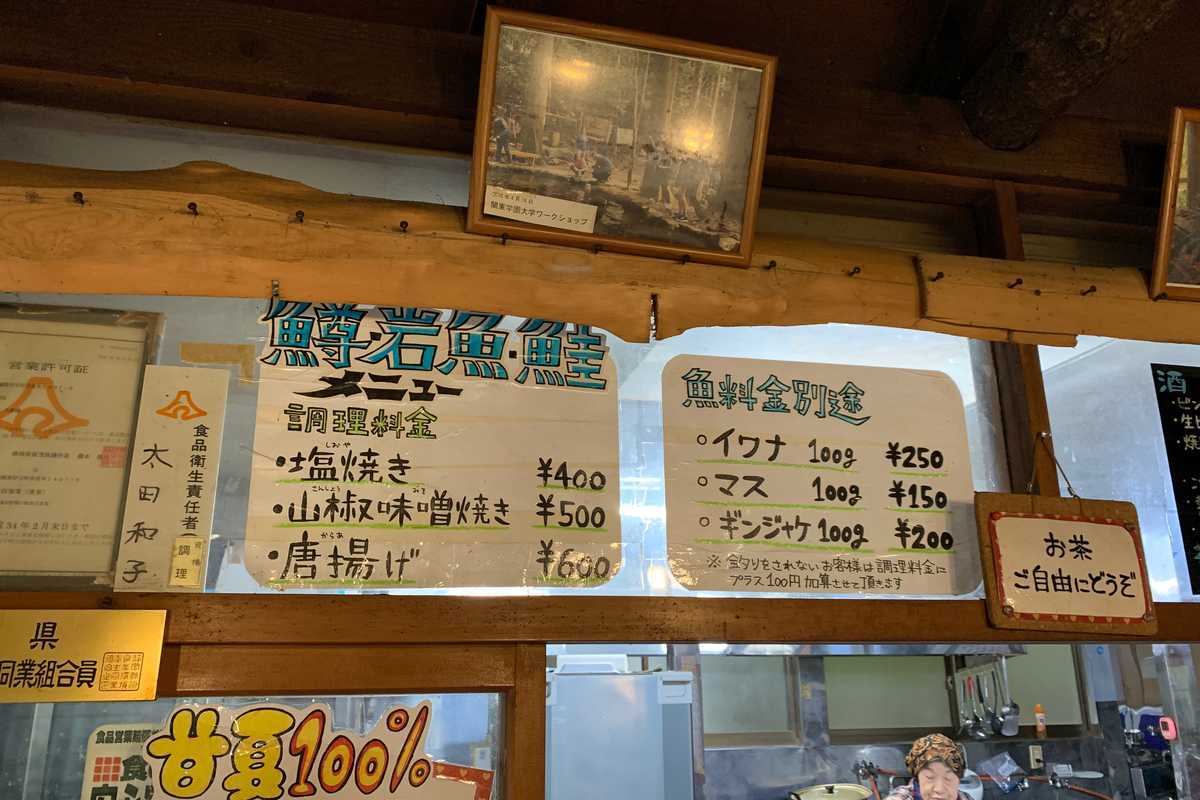 関東学園大学ワークショップ
営業許可証
34年2月末日まで
食品衛生責任者
太田和子
調理
県
同業組合員
鱒・岩魚・鮭
メニュー
調理料金
しおや
・塩焼き ¥400
さんしょう みそ
・山椒味噌焼き ¥500
からあ
・唐揚げ ¥600
魚料金別途
○イワナ 100g ¥250
○マス 100g ¥150
○ギンジャケ 100g ¥200
※釣りをされないお客様は調理料金に
プラス100円加算させて頂きます
お茶
ご自由にどうぞ
酒
甘夏100%